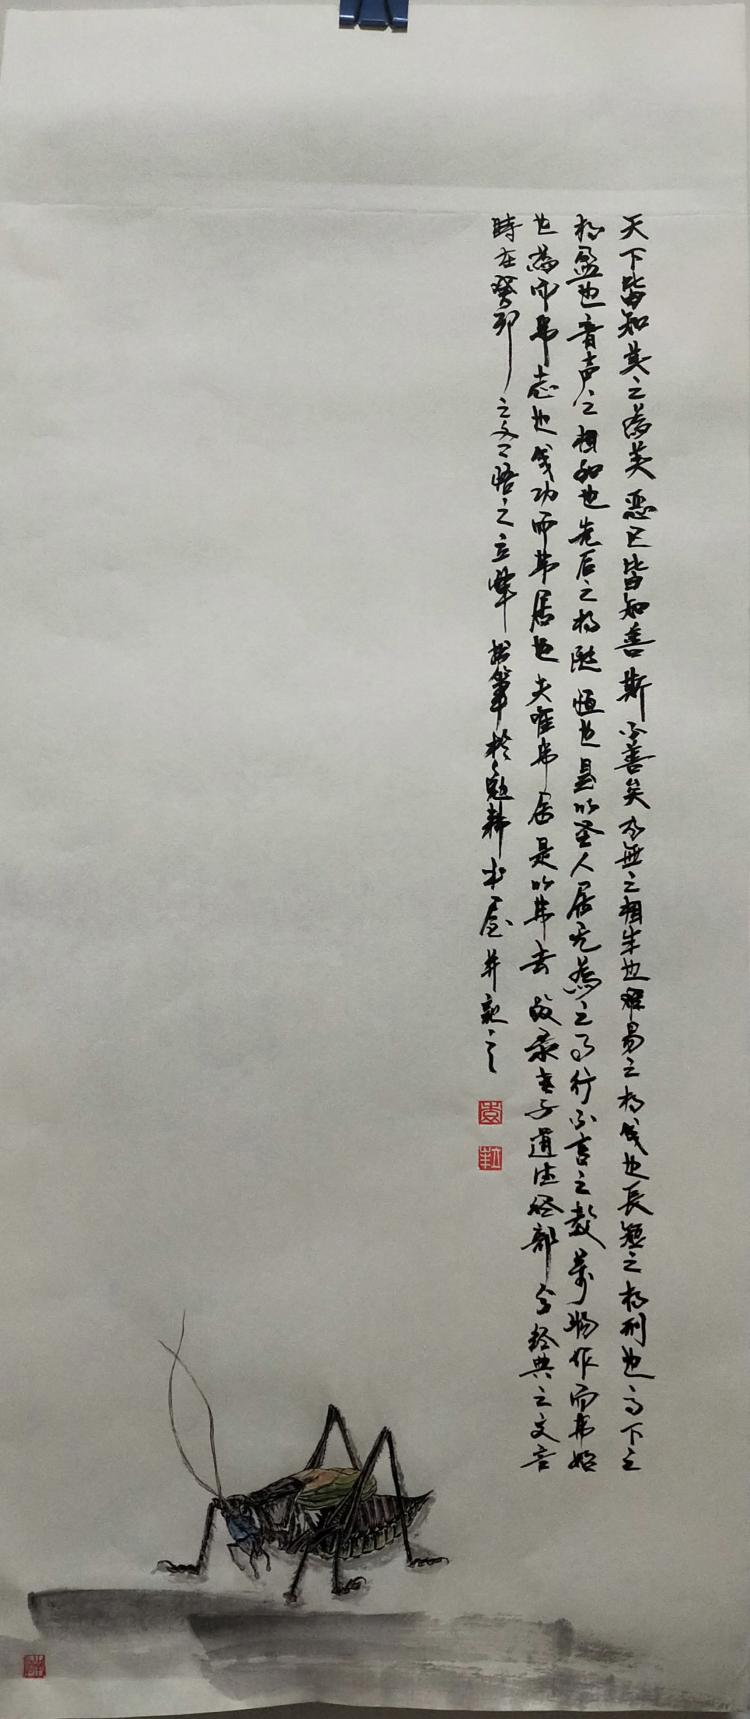 天下皆知美之為美惡已皆知善斯不善矣有無之相生也難易之相成也長短之相刑也高下之
相盈也音声之相和也先后之相隨恒也是以圣人居无為之事行不言之教萬物作而弗始
也為而弗志也成功而弗居也夫唯弗居是以弗去故录老子道德经部分经典之文言
時在癸卯之文悟之立華拙筆於勉耕书屋并記之
立華